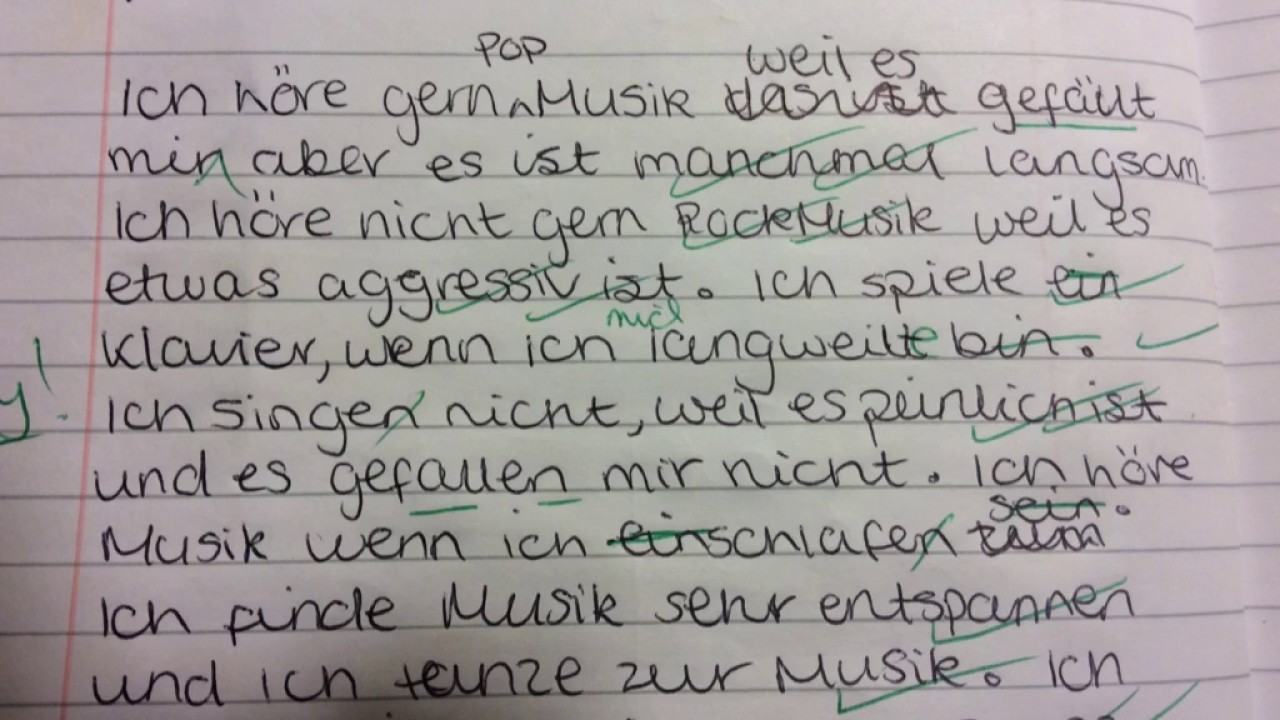 pop weil es
Ich höre gern Musik gefällt
mir aber es ist manchmal langsam.
Ich höre nicht gern Rock Musik weil es
etwas aggressiv ist. Ich spiele ein
mich
Klavier, wenn ich langweilte bin.
y!
Ich singen nicht, weil es peinlich ist
und es gefallen mir nicht. Ich höre
sein.
Musik wenn ich einschlafen
Ich finde Musik sehr entspannen
und ich tanze zur Musik. Ich